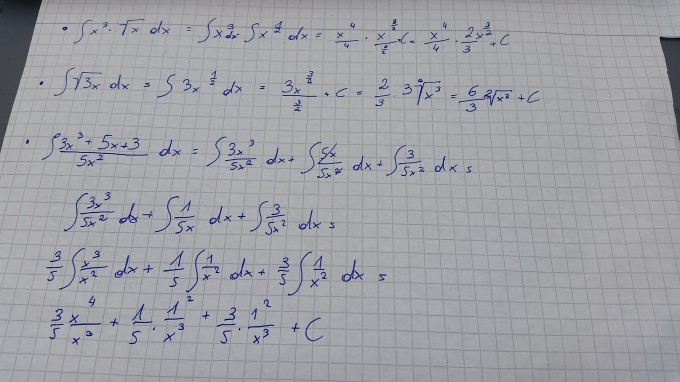 • ∫ x³ · √x dx = ∫ x³ dx ∫ x^(1/2) dx = x⁴/4 · x^(3/2)/(3/2) + C = x⁴/4 · 2x^(3/2)/3 + C
• ∫ √3x dx = ∫ 3x^(1/2) dx = 3x^(3/2)/(3/2) + C = 2/3 · 3 ²√x³ = 6/3 ²√x³ + C
• ∫ (3x³ + 5x + 3)/5x² dx = ∫ 3x³/5x² dx + ∫ 5x/5x² dx + ∫ 3/5x² dx =
∫ 3x³/5x² dx + ∫ 1/5x dx + ∫ 3/5x² dx =
3/5 ∫ x³/x² dx + 1/5 ∫ 1/x² dx + 3/5 ∫ 1/x² dx =
3/5 x⁴/x³ + 1/5 · 1²/x³ + 3/5 · 1²/x³ + C